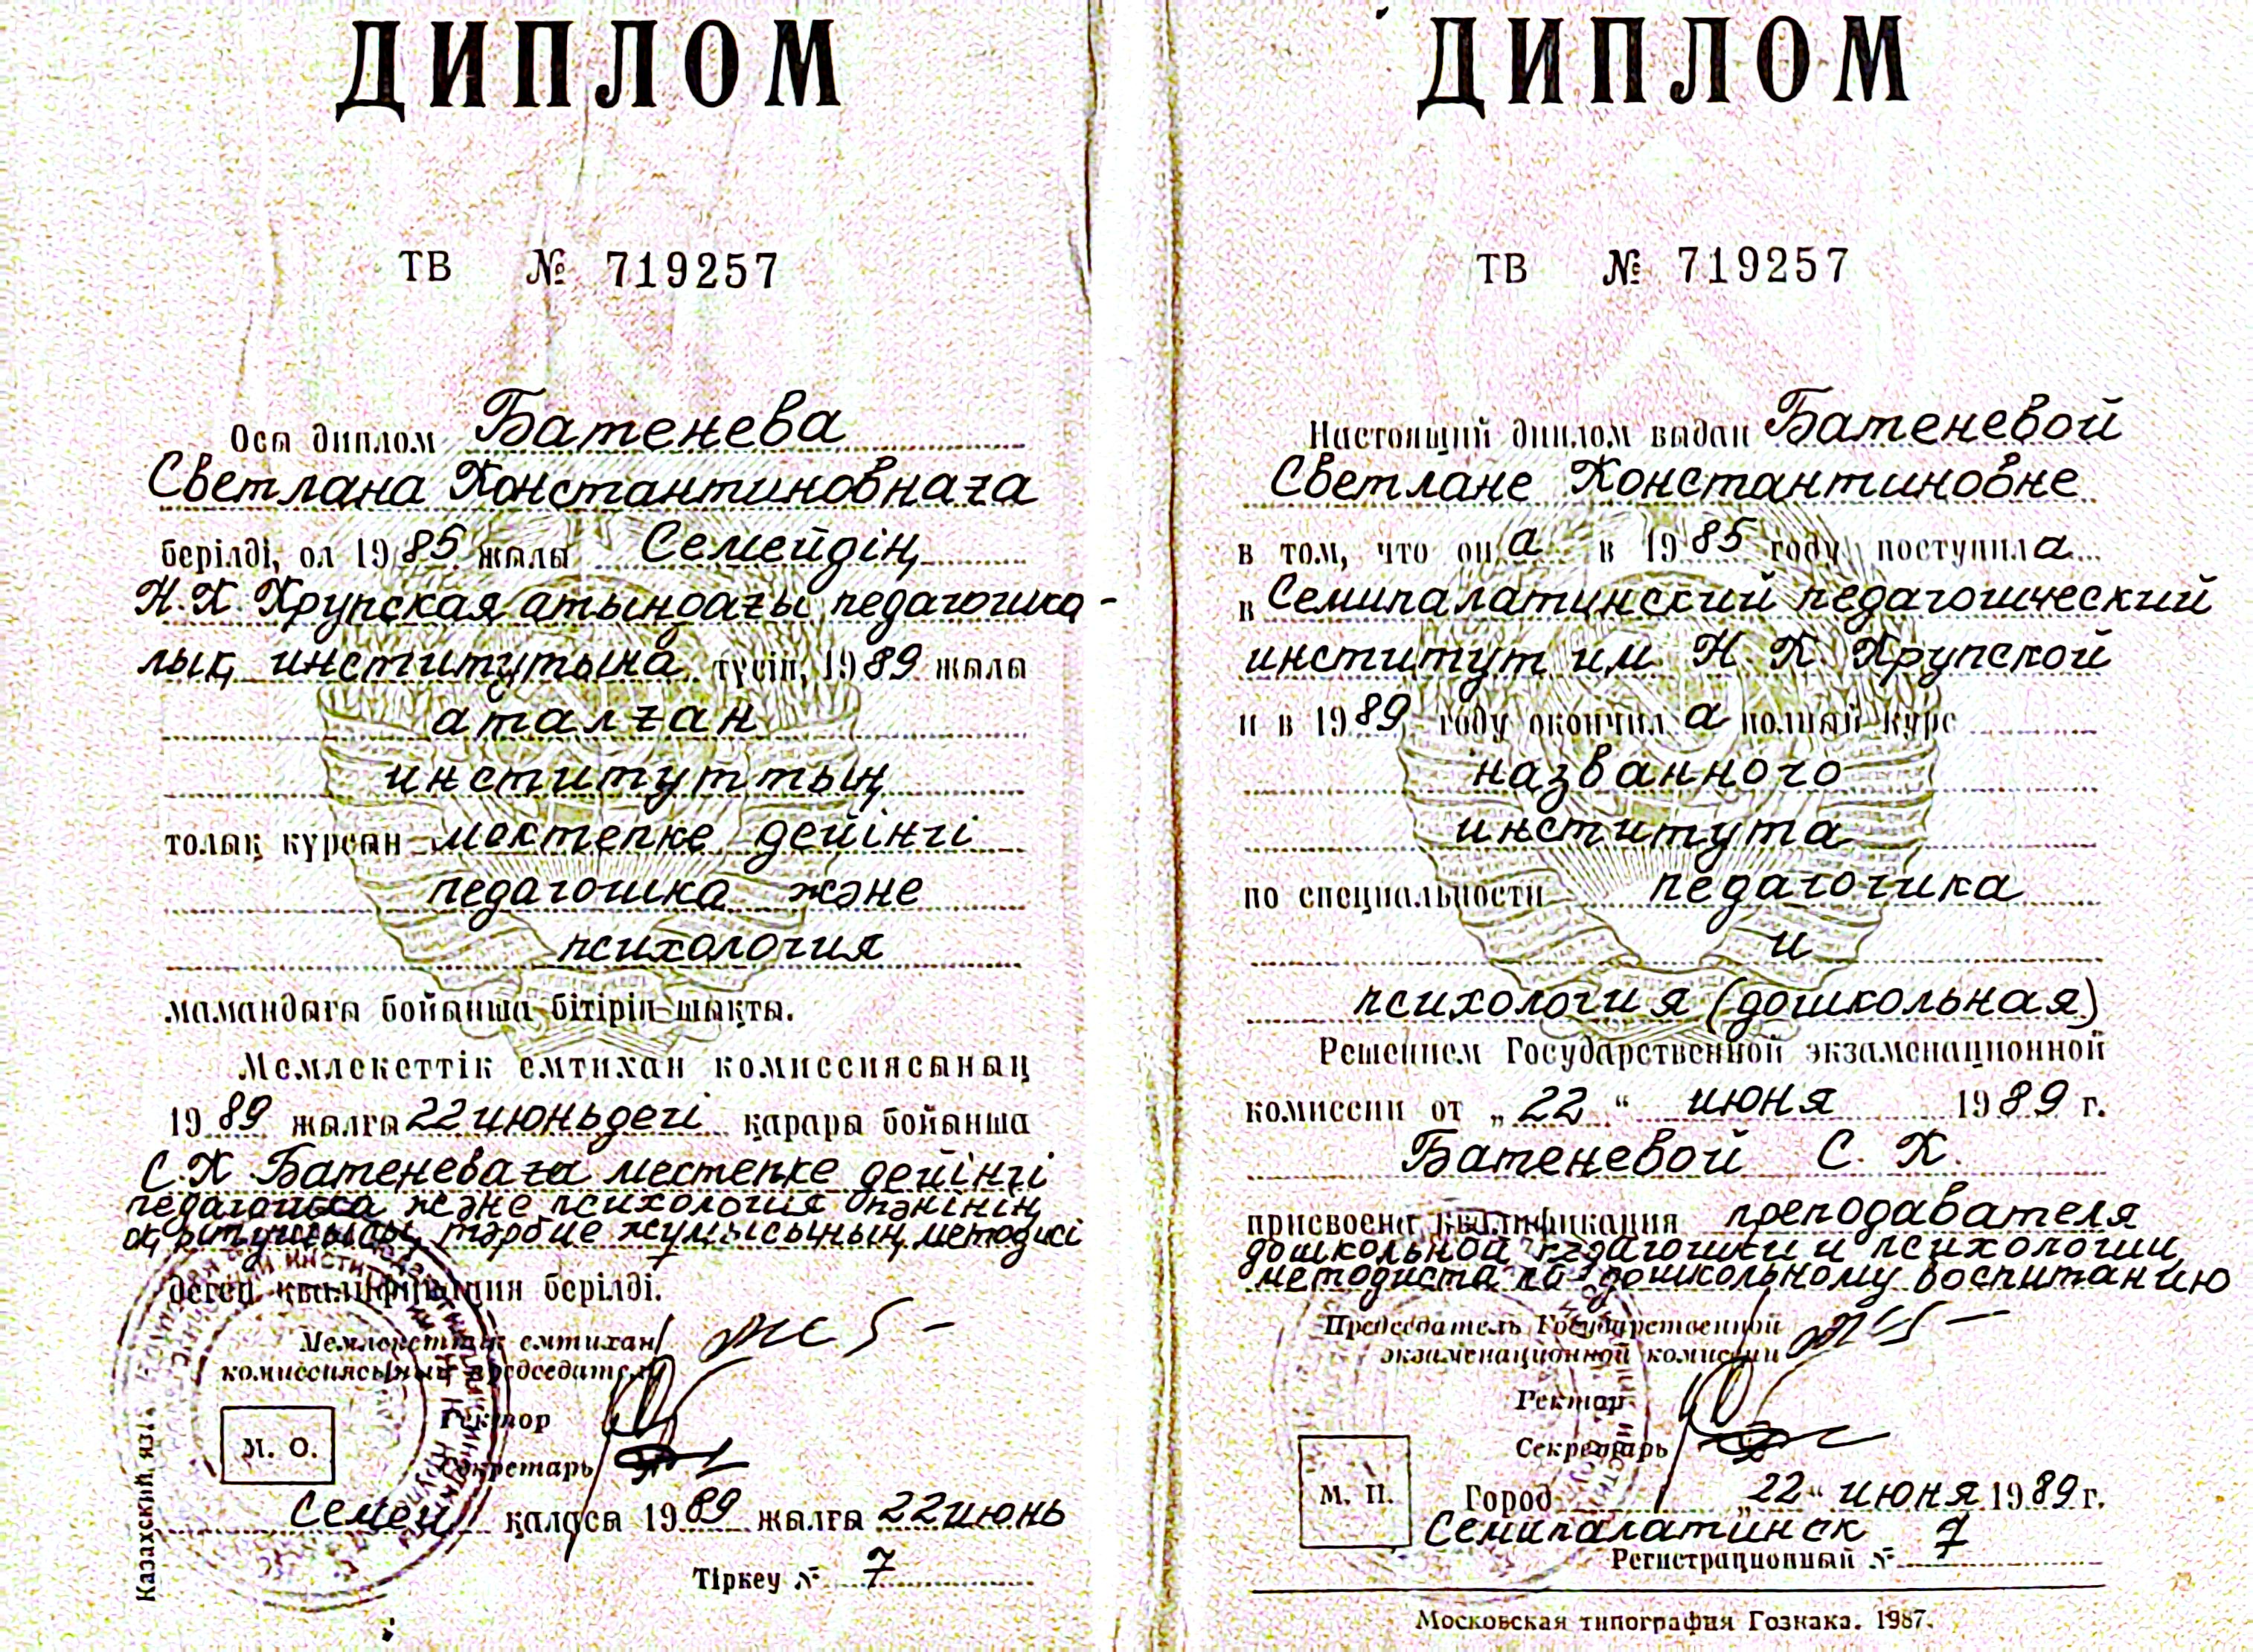 ДИПЛОМ
ТВ № 719257
Осы диплом Батенева
Светлана Константиновнаға
берілді, ол 1985 жылы Семейдің
Н.К. Крупская атындағы педагогика-
лық институтына түсіп, 1989 жылы
аталған
институттың
толық курсын мектепке дейінгі
педагогика және
психология
мамандығы бойынша бітіріп шықты.
Мемлекеттік емтихан комиссиясының
1989 жылғы 22 июньдегі қарары бойынша
С.К Батеневаға мектепке дейінгі
педагогика және психология пәнінің
оқытушысы, тәрбие жұмысының методисі
деген квалификация берілді.
Мемлекеттік емтихан
комиссиясының председателі
Ректор
Секретарь
М. О.
Семей қаласы 1989 жылғы 22 июнь
Тіркеу № 7
Казахский яз.
ДИПЛОМ
ТВ № 719257
Настоящий диплом выдан Батеневой
Светлане Константиновне
в том, что она в 1985 году поступила
в Семипалатинский педагогический
институт им. Н. К. Крупской
и в 1989 году окончила полный курс
названного
института
по специальности педагогика
и
психология (дошкольная)
Решением Государственной экзаменационной
комиссии от „22“ июня 1989 г.
Батеневой С. К.
присвоена квалификация преподавателя
дошкольной педагогики и психологии
методиста по дошкольному воспитанию
Председатель Государственной
экзаменационной комиссии
Ректор
Секретарь
М. П.
Город „22“ июня 1989 г.
Семипалатинск
Регистрационный № 7
Московская типография Гознака. 1987.